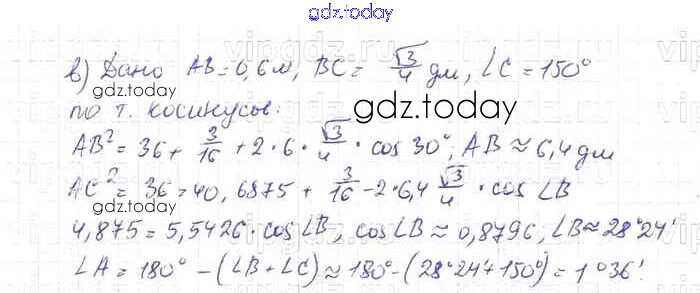 gdz.today
в) Дано AB = 0,6м, BC = √3/4 дм, ∠C = 150°
по т. косинусов:
gdz.today
AB² = 36 + 3/16 + 2 · 6 · √3/4 · cos 30°, AB ≈ 6,4 дм
AC² = 36 = 40,6875 + 3/16 - 2·6,4 √3/4 · cos ∠B
gdz.today
4,875 = 5,5426 · cos ∠B, cos∠B ≈ 0,8796, ∠B ≈ 28°24'
∠A = 180° - (∠B + ∠C) ≈ 180° - (28°24' + 150°) = 1°36'.
gdz.today